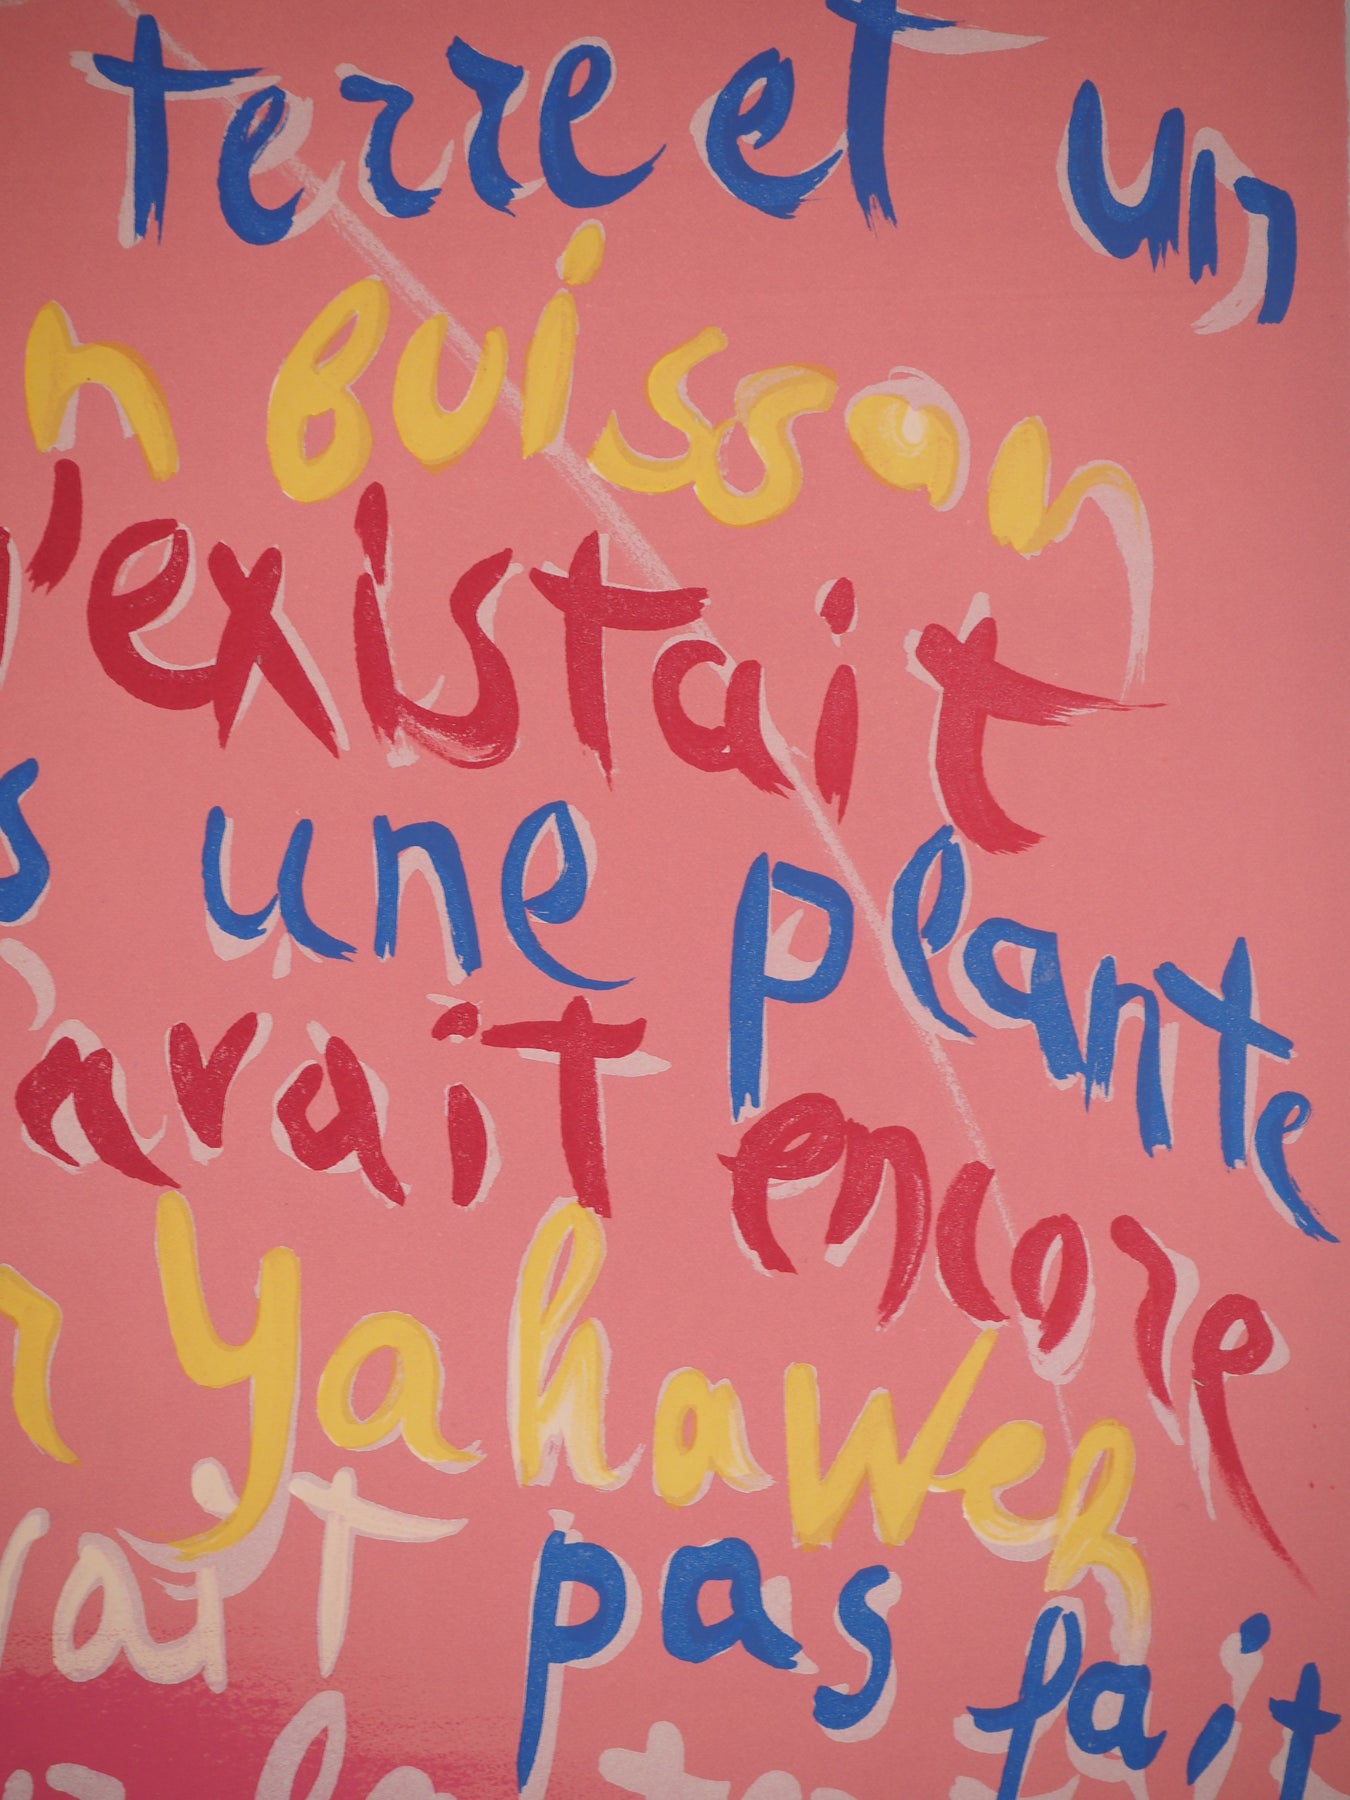 terre et un
n buisson
n'existait
s une plante
n'avait encore
r Yahaweh
vait pas fait